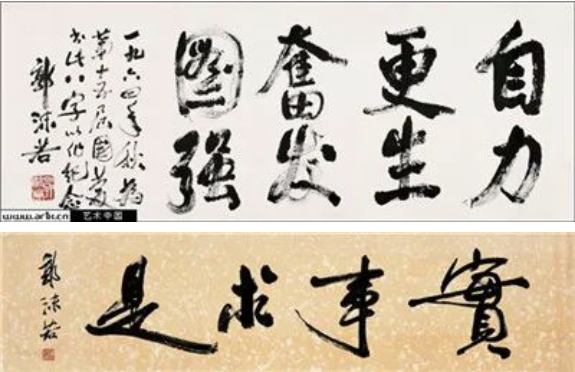 自力
更生
奮发
图强
一九六四年秋为
第十五届國慶
书此八字以作纪念
郭沫若
www.artx.cn 艺术中国
實事求是
郭沫若